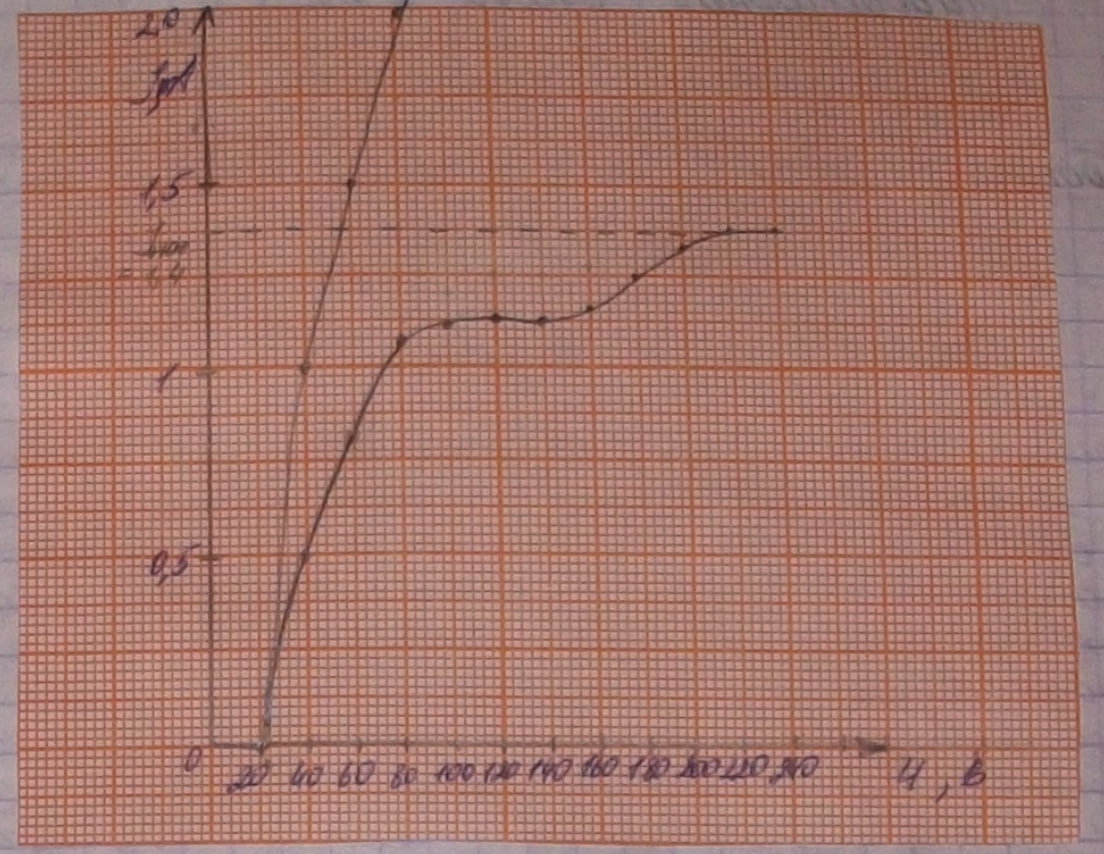 2,0
1,5
= 1,4
1
0,5
0 20 40 60 80 100 120 140 160 180 200 220 240 U, В